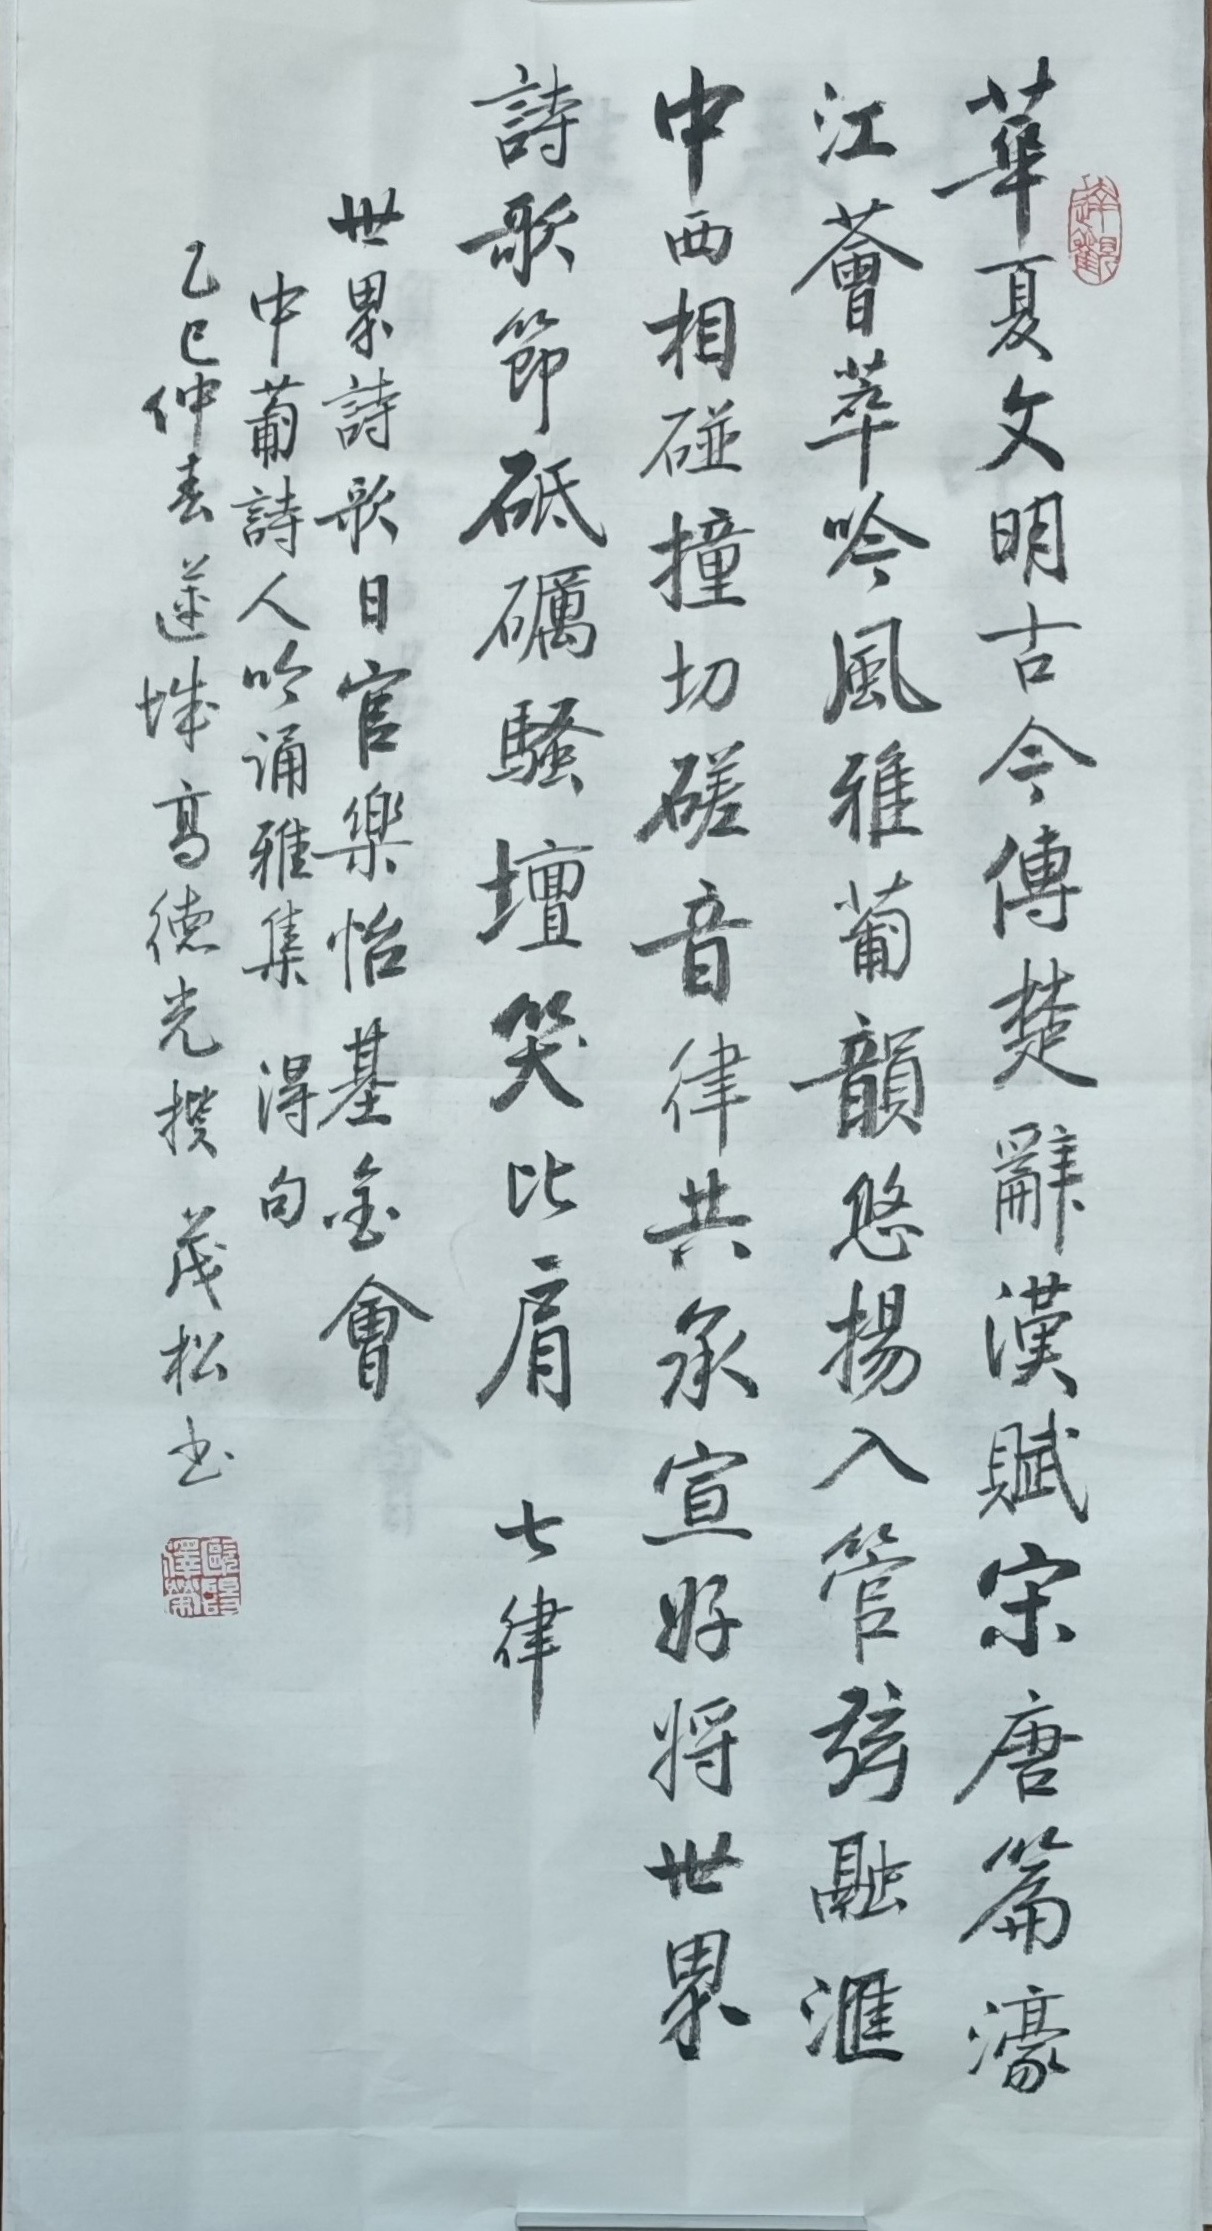 華夏文明古今傳楚辭漢賦宋唐篇濠
江薈萃吟風雅葡韻悠揚入管弦融滙
中西相碰撞切磋音律共承宣好將世界
詩歌節砥礪騷壇笑比肩 七律
世界詩歌日官樂怡基金會
中葡詩人吟诵雅集 得句
乙巳仲春蓮城高德光撰 茂松书